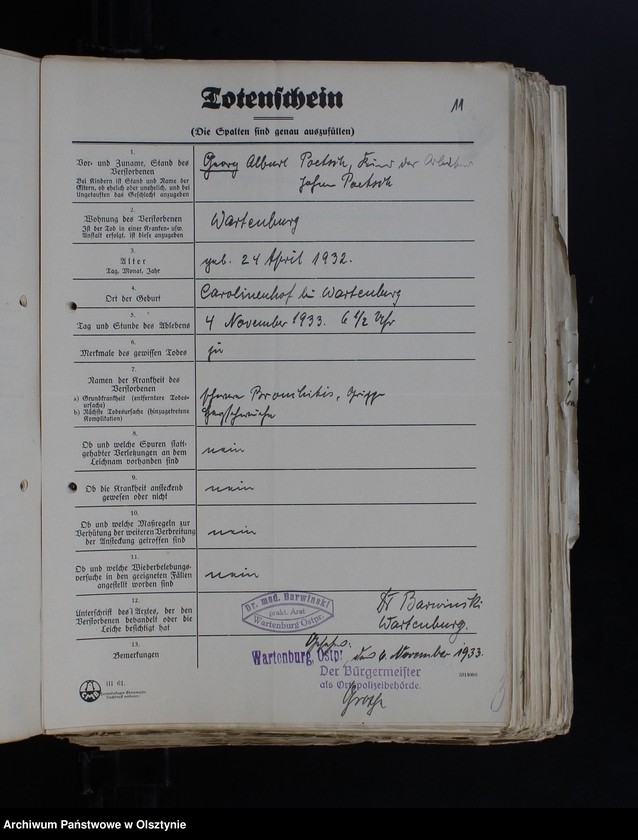 Totenschein
11
(Die Spalten sind genau auszufüllen)
1.
Vor- und Zuname, Stand des
Verstorbenen
Bei Kindern ist Stand und Name der
Eltern, ob ehelich oder unehelich, und bei
Ungetauften das Geschlecht anzugeben
Georg Albert Poetsch, Kind des Arbeiters
Poetsch
2.
Wohnung des Verstorbenen
Ist der Tod in einer Kranken- usw.
Anstalt erfolgt, ist diese anzugeben
Wartenburg
3.
Alter
Tag, Monat, Jahr
geb. 24 April 1932.
4.
Ort der Geburt
Carolinenhof bei Wartenburg
5.
Tag und Stunde des Ablebens
4 November 1933. 6 1/2 Uhr
6.
Merkmale des gewissen Todes
ja
7.
Namen der Krankheit des
Verstorbenen
a) Grundkrankheit (entferntere Todes-
ursache)
b) Nächste Todesursache (hinzugetretene
Komplikation)
schwere Bronchitis, Grippe
Herzschwäche
8.
Ob und welche Spuren statt-
gehabter Verletzungen an dem
Leichnam vorhanden sind
nein
9.
Ob die Krankheit ansteckend
gewesen oder nicht
nein
10.
Ob und welche Maßregeln zur
Verhütung der weiteren Verbreitung
der Ansteckung getroffen sind
nein
11.
Ob und welche Wiederbelebungs-
versuche in den geeigneten Fällen
angestellt worden sind
nein
12.
Unterschrift des Arztes, der den
Verstorbenen behandelt oder die
Leiche besichtigt hat
Dr. med. Barwinski
prakt. Arzt
Wartenburg Ostpr.
Dr Barwinski
Wartenburg.
13.
Bemerkungen
Wartenburg, Ostpr., den 6. November 1933.
Der Bürgermeister
als Ortspolizeibehörde.
III 61.
Archiwum Państwowe w Olsztynie